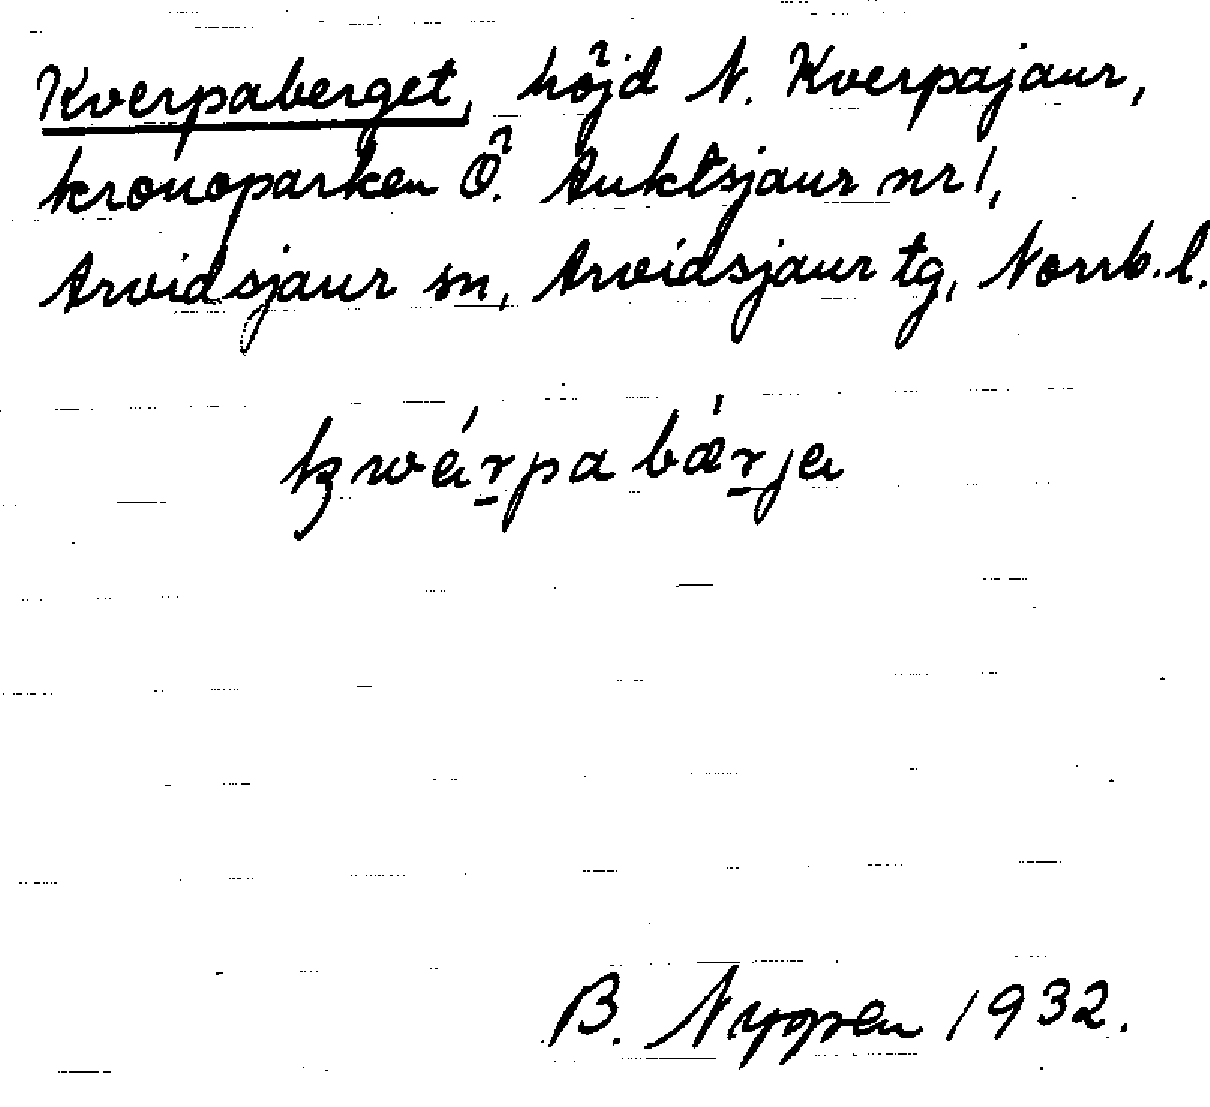 Kverpaberget, höjd N. Kverpajaur,
kronoparken Ö. Auktsjaur nr 1,
Arvidsjaur sn, Arvidsjaur tg, Norrb. l.
kwærpa bærja
B. Nyppen 1932.